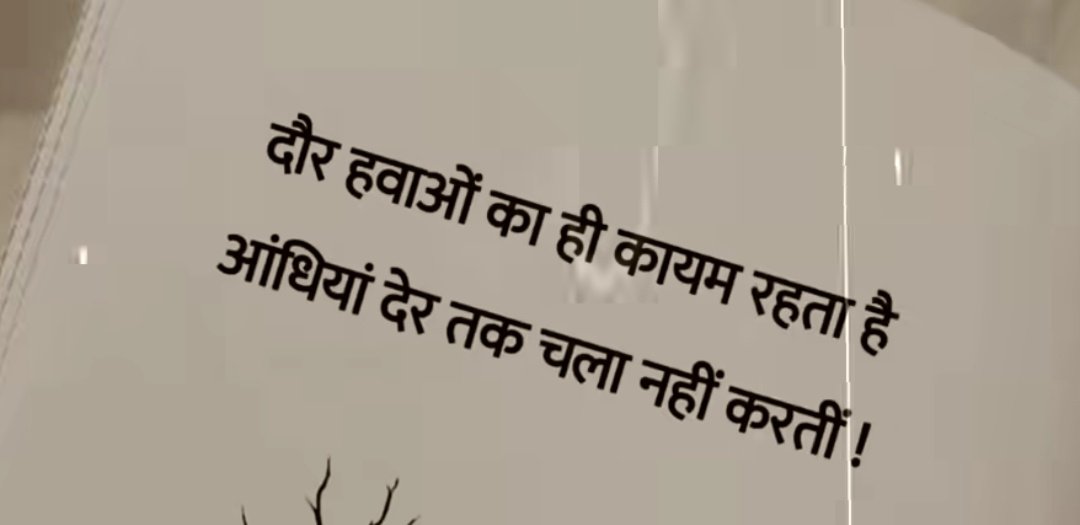 दौर हवाओं का ही कायम रहता है
आंधियां देर तक चला नहीं करतीं !